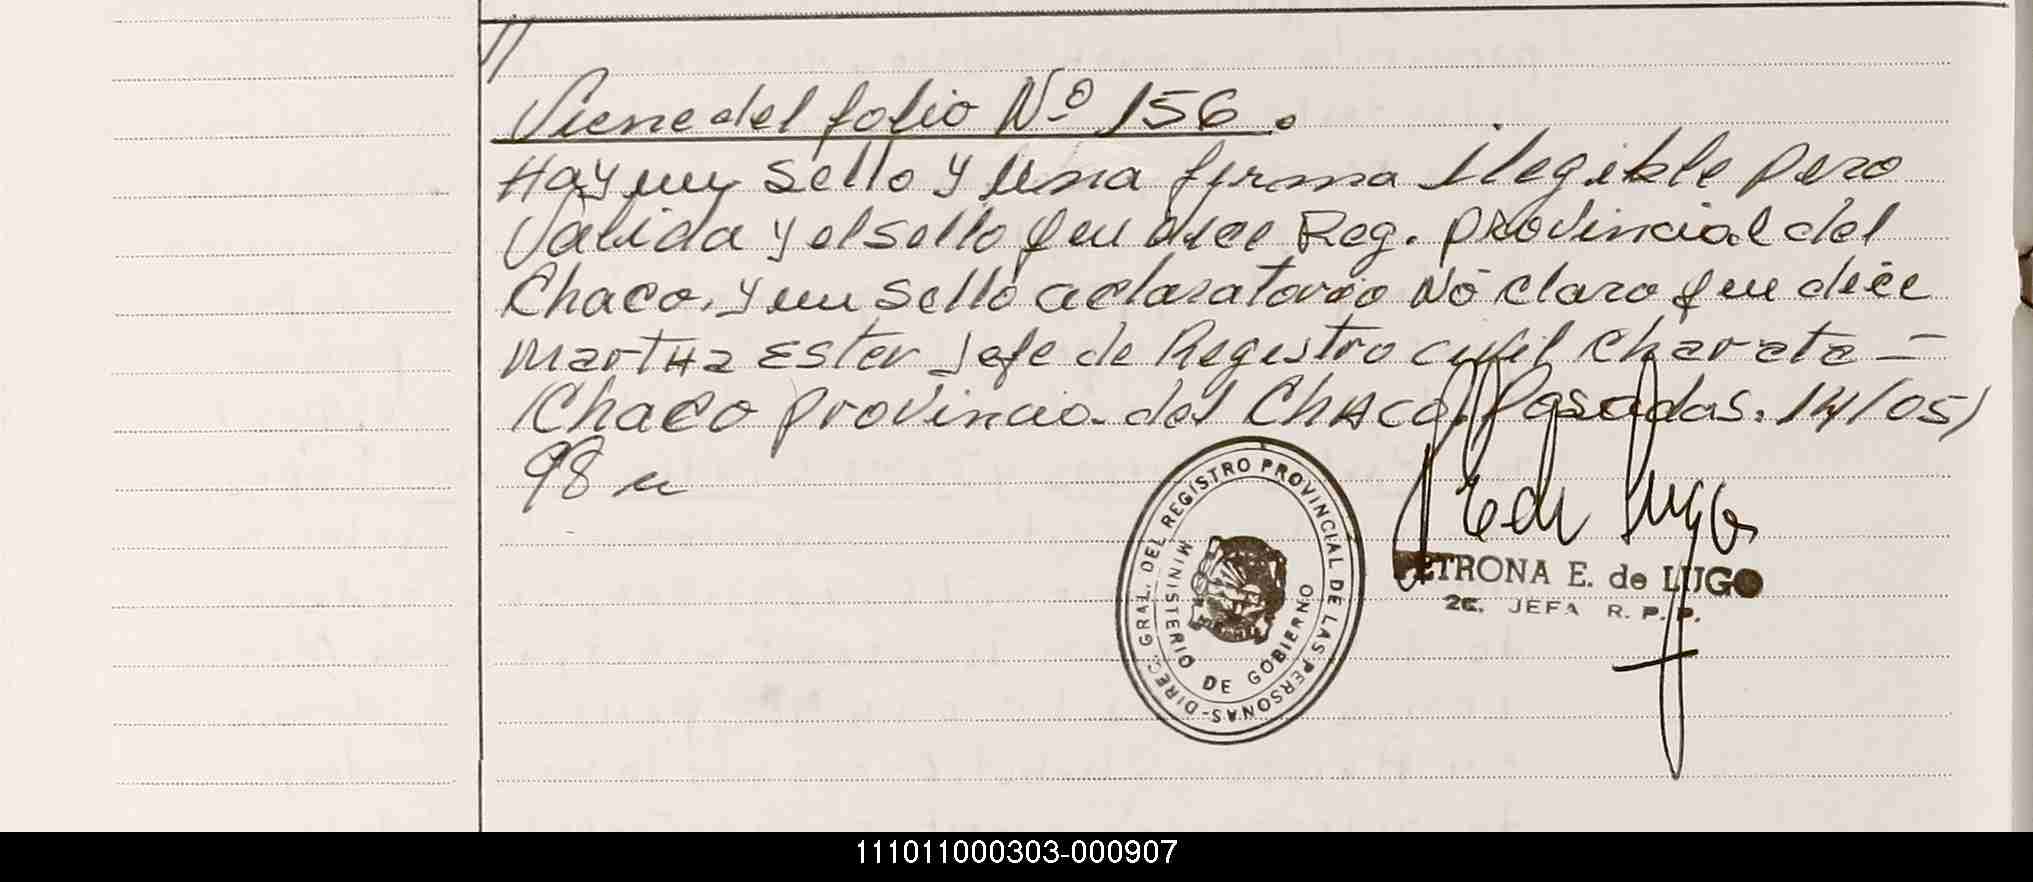 //
Viene del folio Nº 156.
Hay un sello y una firma ilegible pero
Valida y el sello que dice Reg. provincial del
Chaco. y un sello aclaratorio Nó claro que dice
MartHa Ester Jefe de Registro civil Charata -
Chaco provincia del CHACO. Posadas. 14/05/
98
DIREC. GRAL. DEL REGISTRO PROVINCIAL DE LAS PERSONAS-
MINISTERIO DE GOBIERNO
PETRONA E. de LUGO
2a. JEFA R. P. P.
111011000303-000907